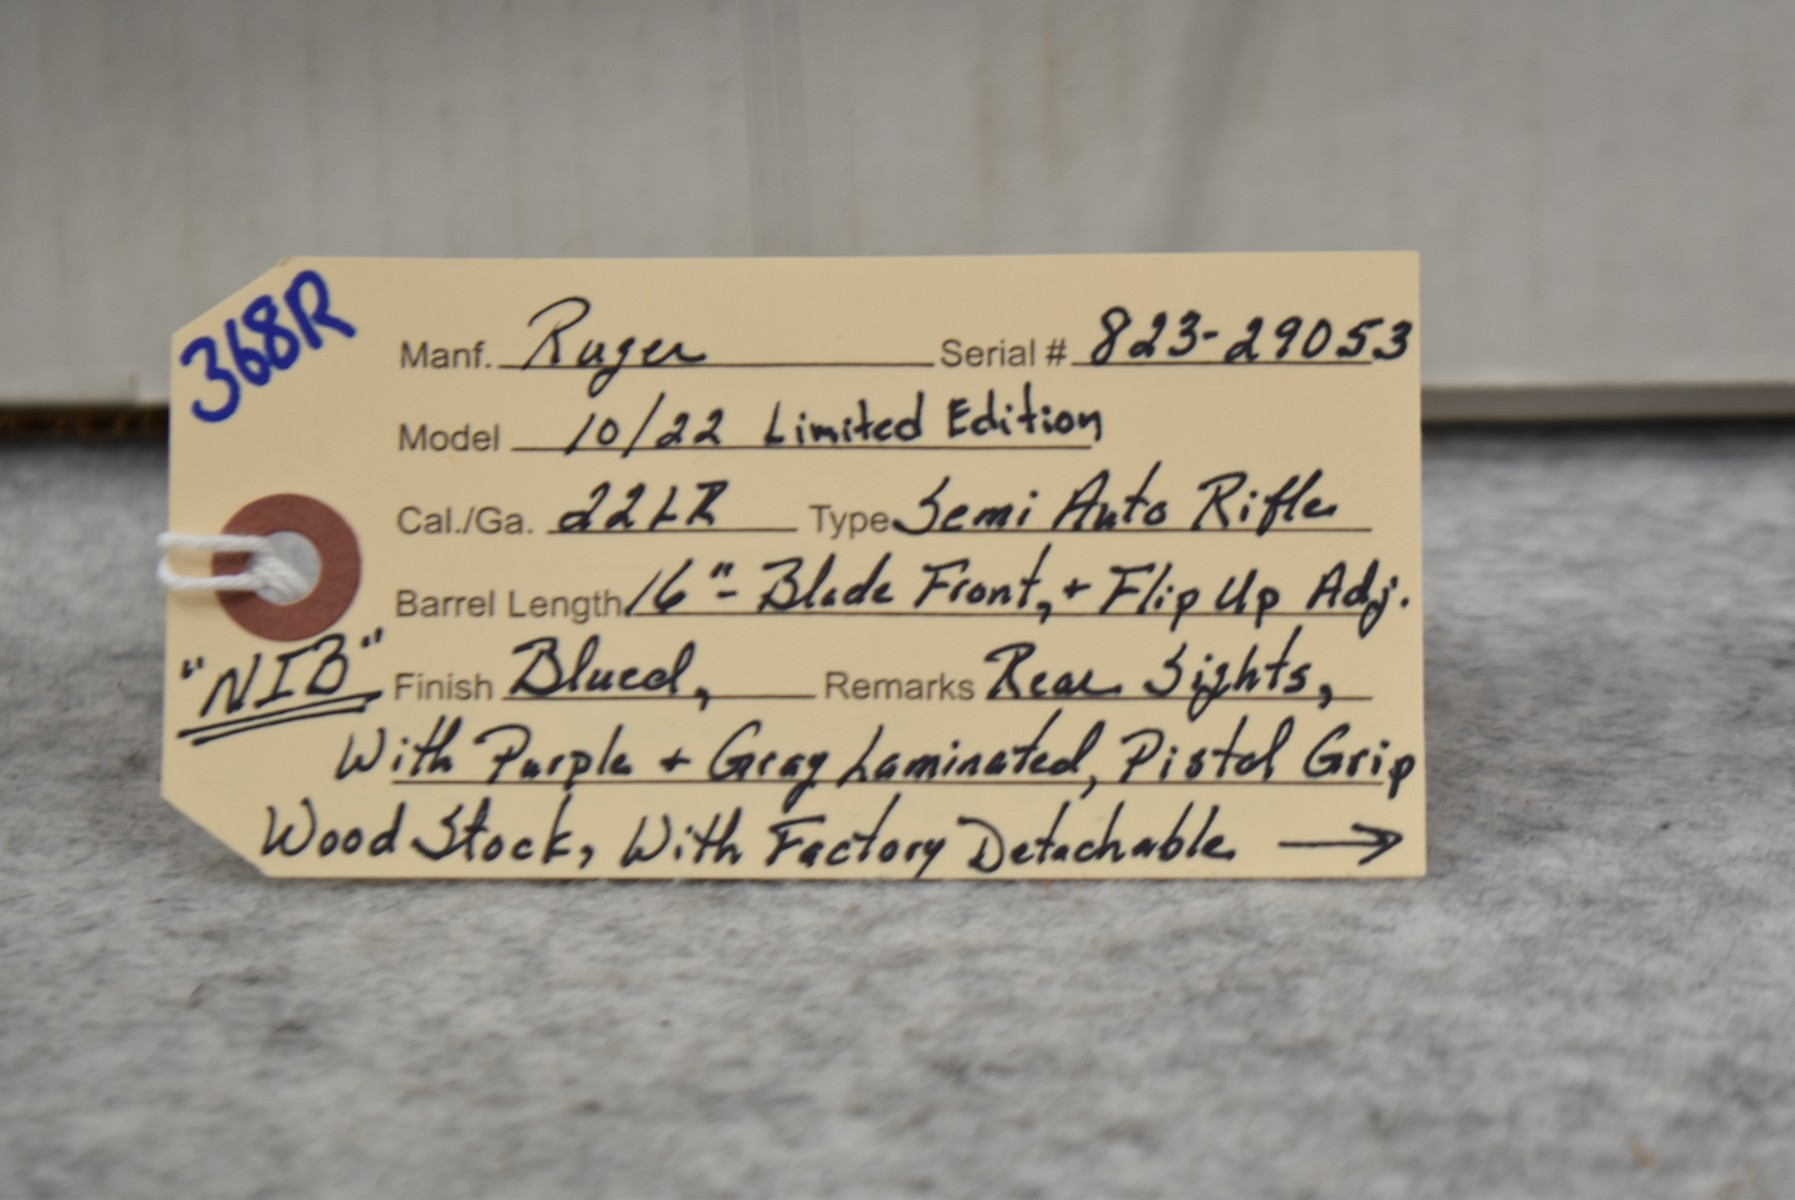 368R
Manf. Ruger Serial # 823-29053
Model 10/22 Limited Edition
Cal./Ga. 22LR Type Semi Auto Rifle
Barrel Length 16"- Blade Front, + Flip Up Adj.
"NIB" Finish Blued, Remarks Rear Sights,
With Purple + Gray Laminated, Pistol Grip
Wood Stock, With Factory Detachable →